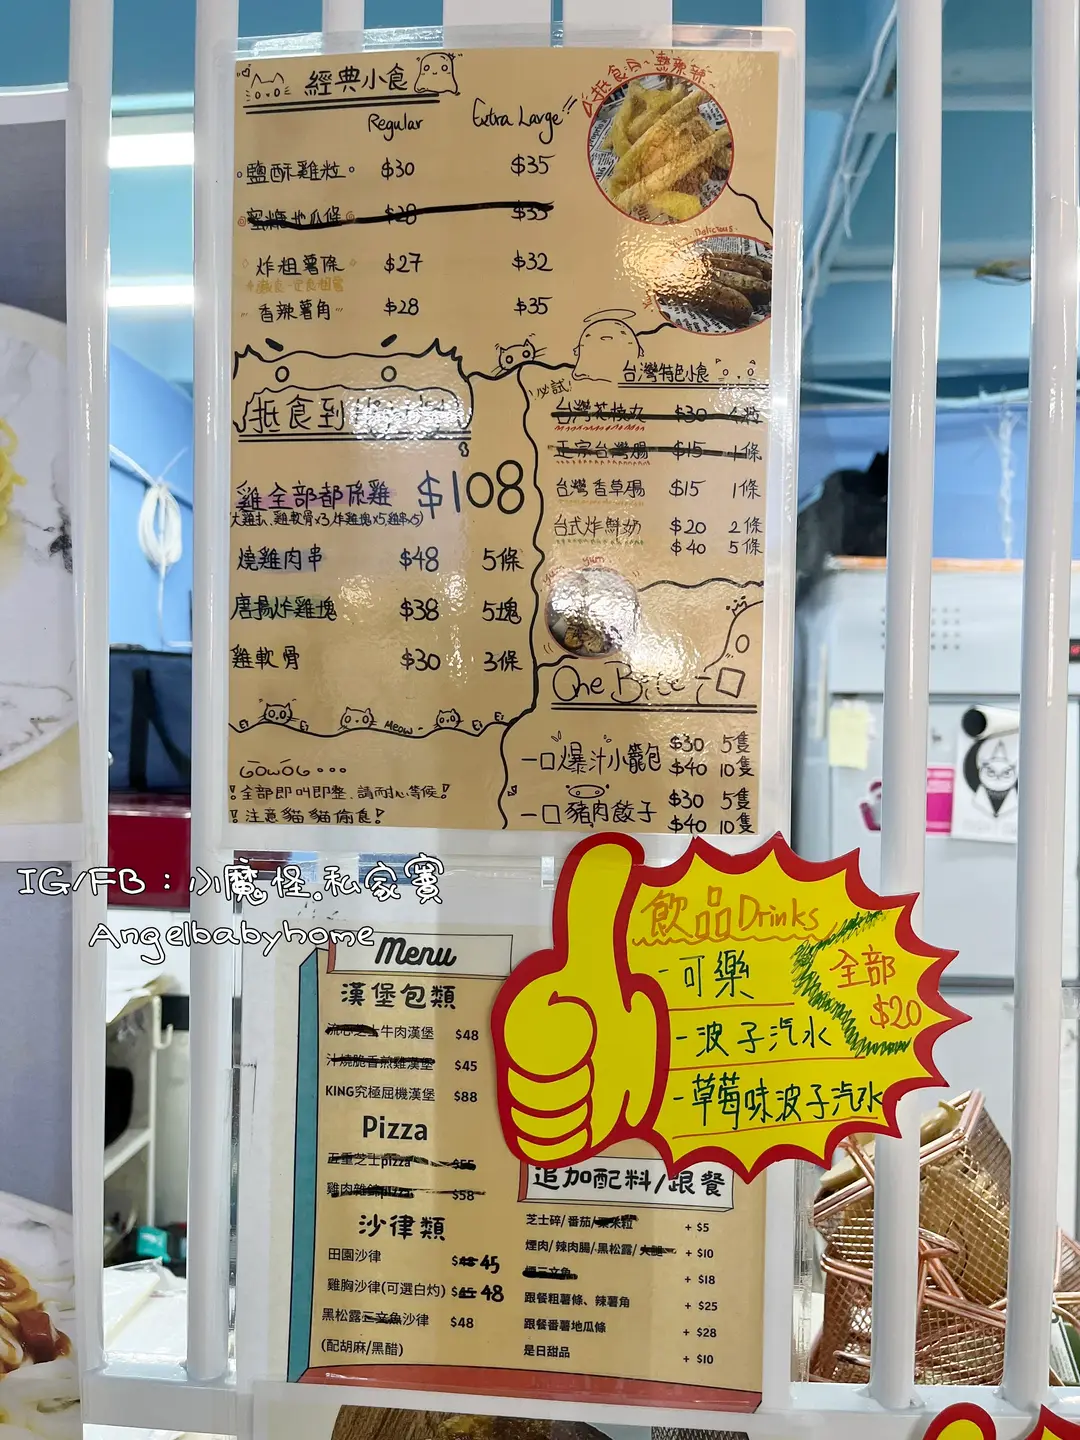 經典小食
Regular Extra Large!!
抵食日、熱辣辣
鹽酥雞粒 $30 $35
蜜糖地瓜條 $28 $35
炸粗薯條 $27 $32
香辣薯角 $28 $35
Delicious
抵食到
雞全部都係雞 $108
燒雞肉串 $48 5條
唐揚炸雞塊 $38 5塊
雞軟骨 $30 3條
Meow
!全部即叫即整,請耐心等候!
!注意貓貓偷食!
台灣特色小食
必試!
台灣花枝丸 $30 4粒
正宗台灣腸 $15 1條
台灣香草腸 $15 1條
台式炸鮮奶 $20 2條
$40 5條
yum
One Bite
一口爆汁小籠包 $30 5隻
$40 10隻
一口豬肉餃子 $30 5隻
$40 10隻
IG/FB:小魔怪.私家竇
Angelbabyhome
飲品Drinks
全部
$20
-可樂
-波子汽水
-草莓味波子汽水
Menu
漢堡包類
流心芝士牛肉漢堡 $48
汁燒脆香煎雞漢堡 $45
KING究極屈機漢堡 $88
Pizza
芝士pizza $55
雞肉 pizza $58
沙律類
田園沙律 $48 45
雞胸沙律(可選白灼) $45 48
黑松露三文魚沙律 $48
(配胡麻/黑醋)
追加配料/跟餐
芝士碎/番茄/粟米粒 + $5
煙肉/辣肉腸/黑松露/ + $10
煙三文魚 + $18
跟餐粗薯條、辣薯角 + $25
跟餐番薯地瓜條 + $28
是日甜品 + $10